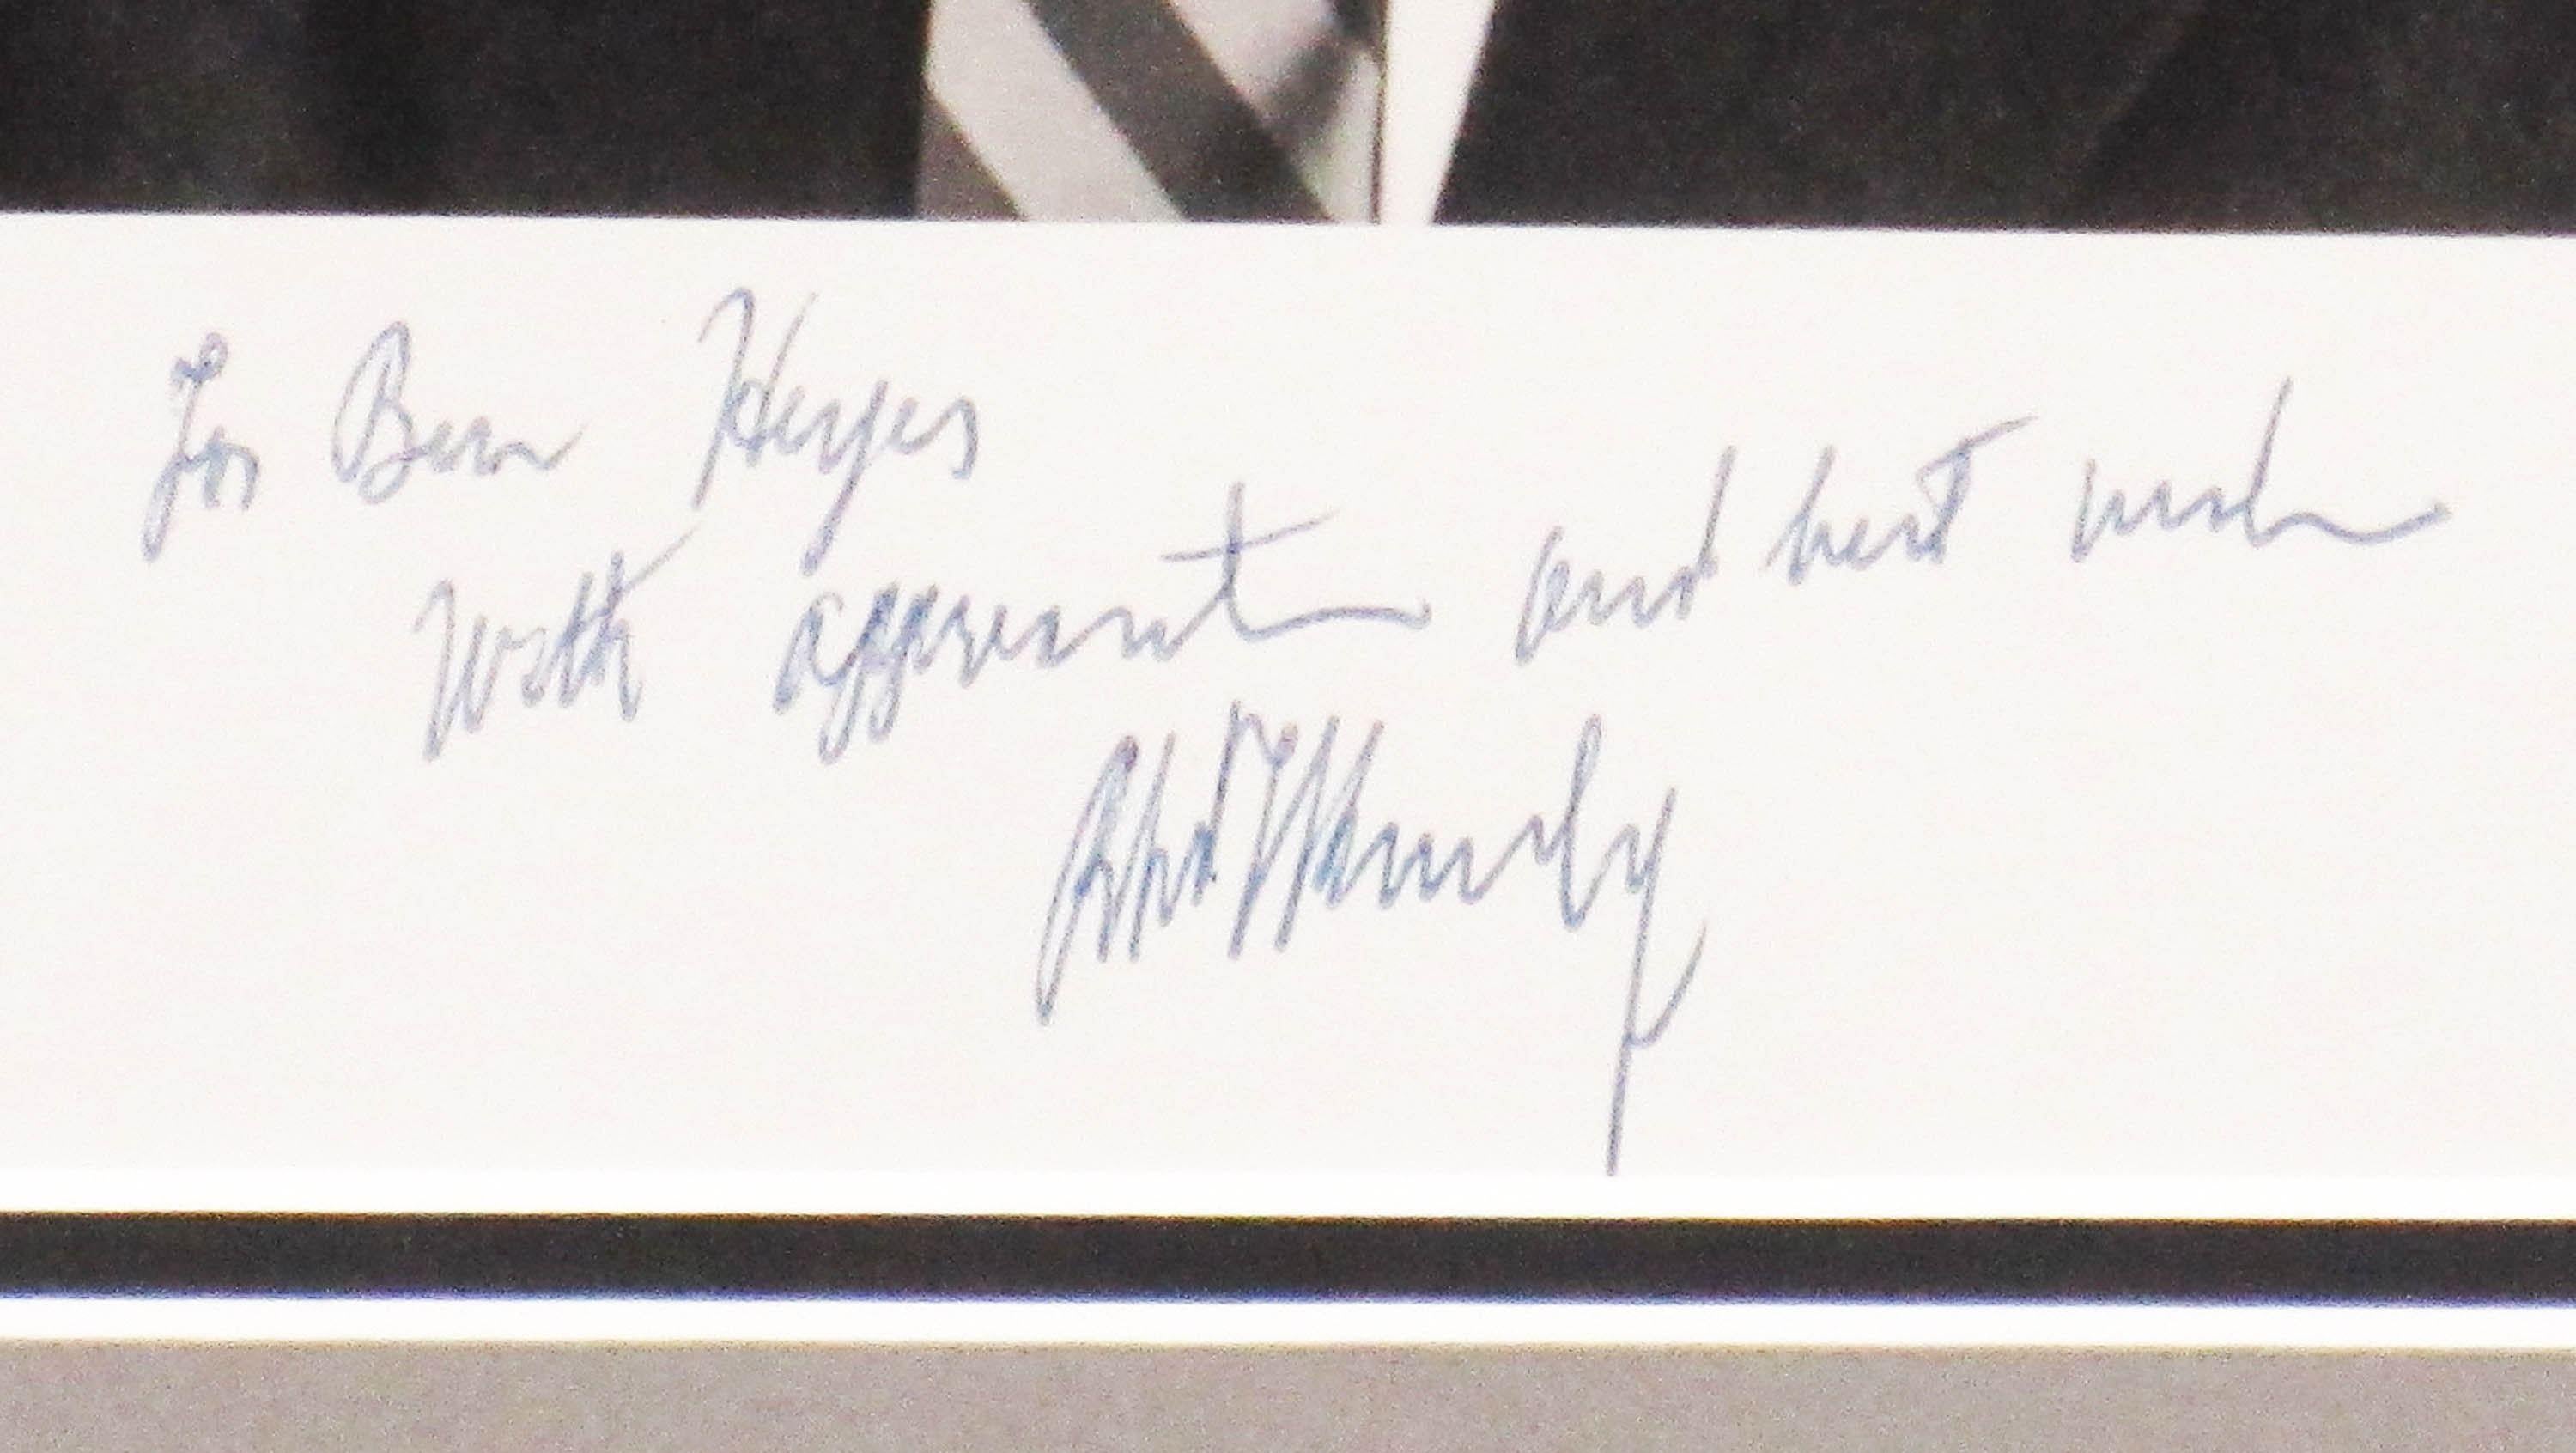 For Ben Heyes
With appreciation and best wishes
Robert F Kennedy